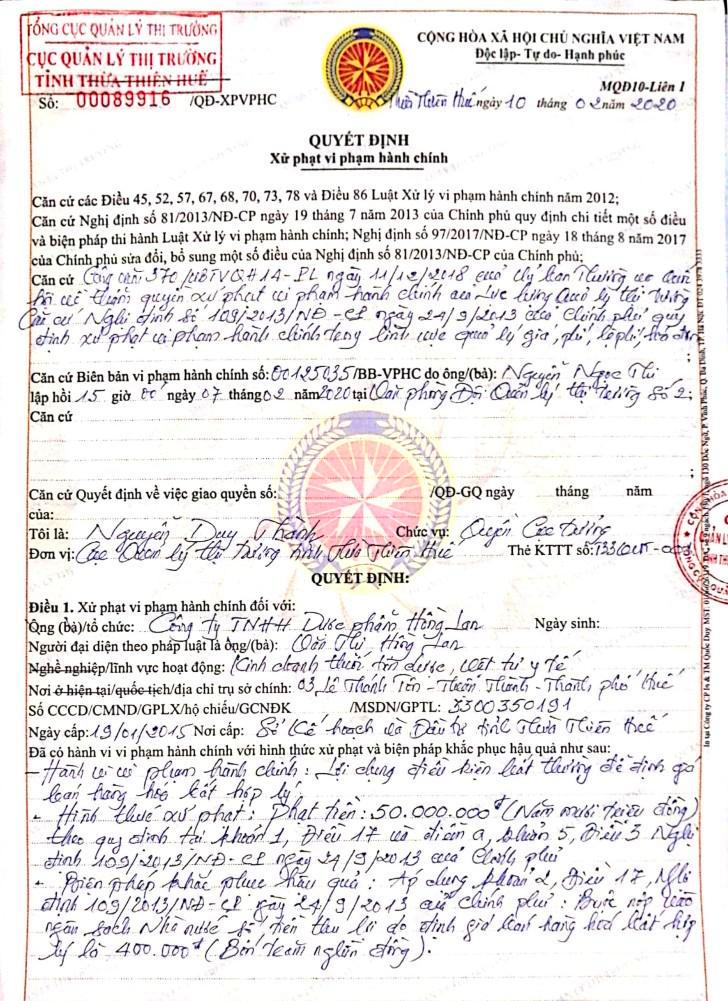 TỔNG CỤC QUẢN LÝ THỊ TRƯỜNG
CỤC QUẢN LÝ THỊ TRƯỜNG
TỈNH THỪA THIÊN HUẾ
Số: 00089916 /QĐ-XPVPHC
CỘNG HÒA XÃ HỘI CHỦ NGHĨA VIỆT NAM
Độc lập- Tự do- Hạnh phúc
MQĐ10-Liên 1
Thừa Thiên Huế ngày 10 tháng 02 năm 2020
QUYẾT ĐỊNH
Xử phạt vi phạm hành chính
Căn cứ các Điều 45, 52, 57, 67, 68, 70, 73, 78 và Điều 86 Luật Xử lý vi phạm hành chính năm 2012;
Căn cứ Nghị định số 81/2013/NĐ-CP ngày 19 tháng 7 năm 2013 của Chính phủ quy định chi tiết một số điều
và biện pháp thi hành Luật Xử lý vi phạm hành chính; Nghị định số 97/2017/NĐ-CP ngày 18 tháng 8 năm 2017
của Chính phủ sửa đổi, bổ sung một số điều của Nghị định số 81/2013/NĐ-CP của Chính phủ;
Căn cứ Công văn 370/UBTVQH14-PL ngày 11/12/2018 của Ủy ban Thường vụ Quốc
hội về thẩm quyền xử phạt vi phạm hành chính của Lực lượng Quản lý thị trường
Căn cứ Nghị định số 109/2013/NĐ-CP ngày 24/9/2013 của Chính phủ quy
định xử phạt vi phạm hành chính trong lĩnh vực quản lý giá, phí, lệ phí, hóa đơn
;
Căn cứ Biên bản vi phạm hành chính số: 00125035/BB-VPHC do ông/(bà): Nguyễn Ngọc Thi
lập hồi 15 giờ 00 ngày 07 tháng 02 năm 2020 tại Văn phòng Đội Quản lý thị trường số 2;
Căn cứ
;
Căn cứ Quyết định về việc giao quyền số: /QĐ-GQ ngày tháng năm
của:
Tôi là: Nguyễn Duy Thành Chức vụ: Quyền Cục trưởng
Đơn vị: Cục Quản lý thị trường tỉnh Thừa Thiên Huế Thẻ KTTT số:
QUYẾT ĐỊNH:
Điều 1. Xử phạt vi phạm hành chính đối với:
Ông (bà)/tổ chức: Công ty TNHH Dược phẩm Hồng Lan Ngày sinh:
Người đại diện theo pháp luật là ông/(bà): Văn Thị Hồng Lan
Nghề nghiệp/lĩnh vực hoạt động: Kinh doanh thuốc tân dược, vật tư y tế
Nơi ở hiện tại/quốc tịch/địa chỉ trụ sở chính: 03 Lê Thánh Tôn - Thuận Thành - Thành phố Huế
Số CCCD/CMND/GPLX/hộ chiếu/GCNĐK /MSDN/GPTL: 3300350191
Ngày cấp: 19/01/2015 Nơi cấp: Sở Kế hoạch và Đầu tư tỉnh Thừa Thiên Huế
Đã có hành vi vi phạm hành chính với hình thức xử phạt và biện pháp khắc phục hậu quả như sau:
- Hành vi vi phạm hành chính: Lợi dụng điều kiện bất thường để định giá
bán hàng hóa bất hợp lý.
- Hình thức xử phạt: Phạt tiền: 50.000.000đ (Năm mươi triệu đồng)
theo quy định tại khoản 1, Điều 17 và điểm a, khoản 5, Điều 3 Nghị
định 109/2013/NĐ-CP ngày 24/9/2013 của Chính phủ
- Biện pháp khắc phục hậu quả: Áp dụng khoản 2, Điều 17, Nghị
định 109/2013/NĐ-CP ngày 24/9/2013 của Chính phủ: Buộc nộp vào
ngân sách Nhà nước số tiền thu lợi do định giá bán hàng hóa bất hợp
lý là 400.000đ (Bốn trăm nghìn đồng).